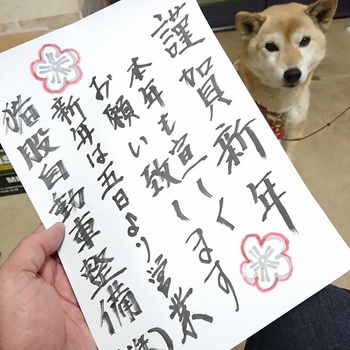 謹賀新年
本年も宜しく
お願い致します
新年は五日より営業
猪股自動車整備